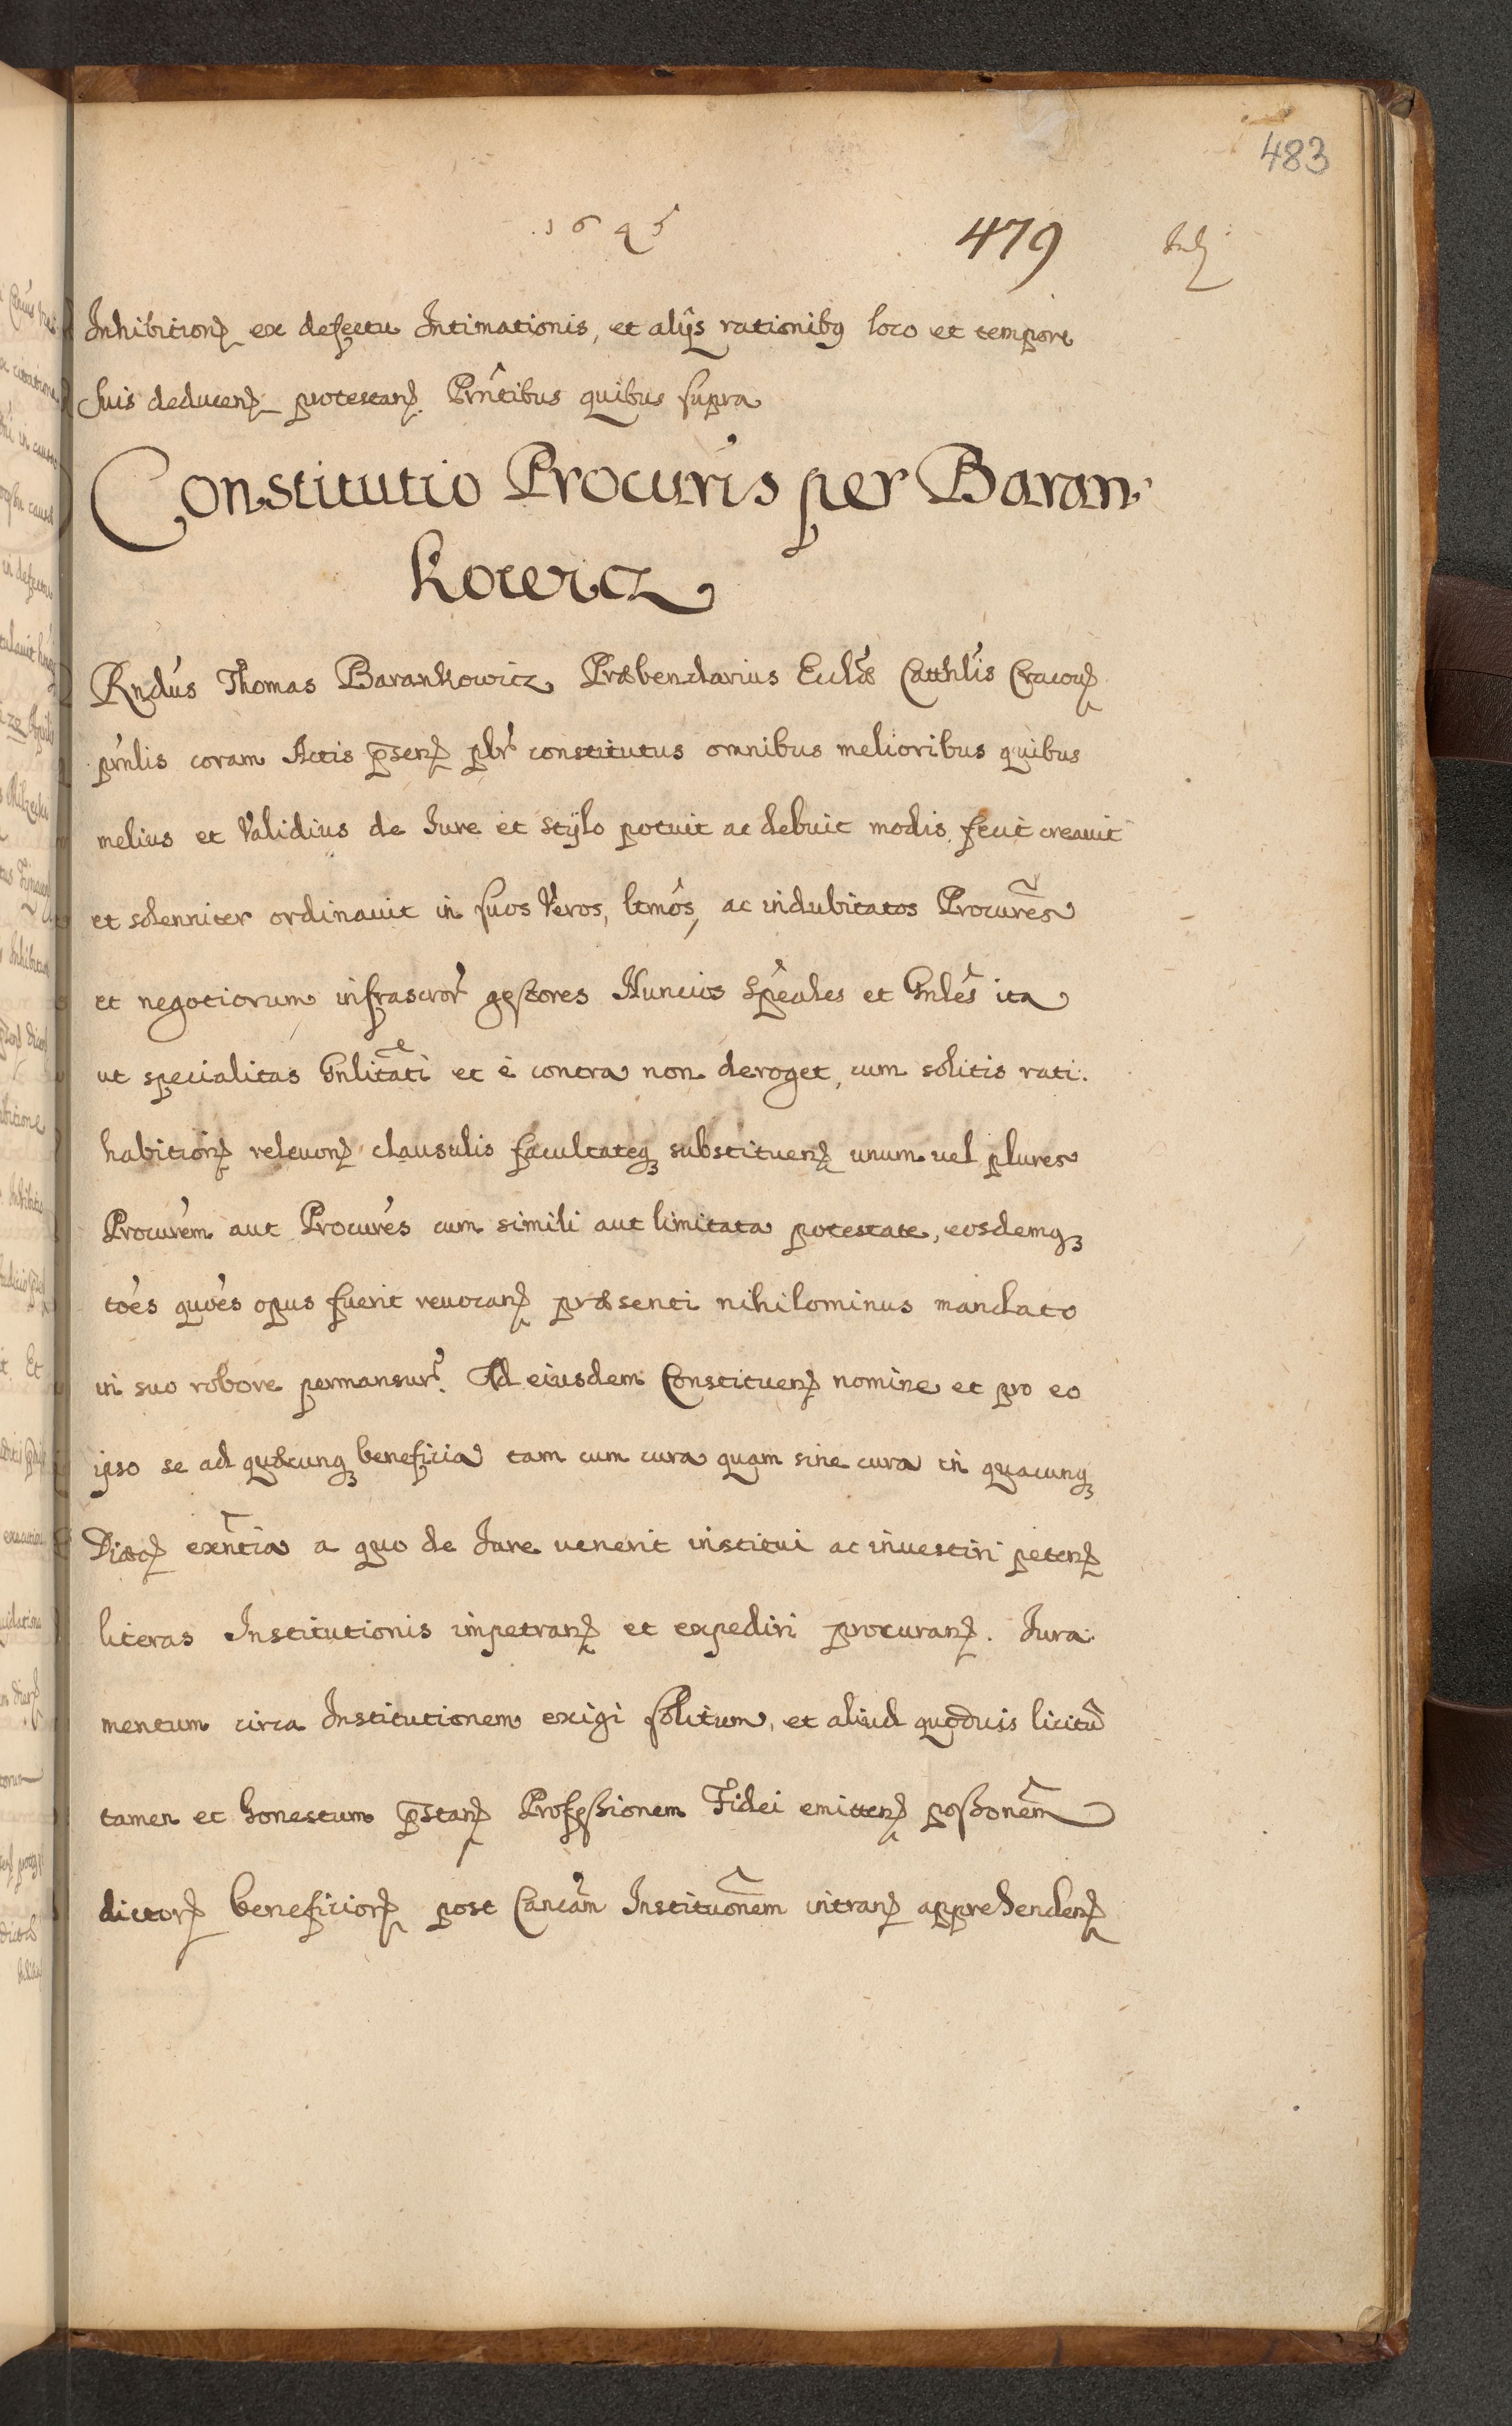 483
1645 479
Inhibition ex defectu Intimationis, et alijs rationibq loco et tempore
suis deducen protestan. Prntibus quibus supra
Constitutio Procuris per Baran
kowicz
Rndus Thomas Barankowicz Præbendarius Eccliæ Catthlis Cracou
prnlis coram Actis psen plr constitutus omnibus melioribus quibus
melius et Validius de Iure et stylo potuit ac debuit modis fecit creauit
et solenniter ordinauit in suos Veros, ltmos, ac indubitatos Procures
et negotiorum infrascror gestores Nuncios speales et Gnles ita
ut specialitas Gnlitati et è contra non deroget, cum solitis rati.
habition releuon clausulis facultateq substituen unum uel plures
Procurem aut Procures cum simili aut limitata potestate, eosdemq
toes quoes opus fuerit reuocan præsenti nihilominus mandato
in suo robore permansur. Ad eiusdem Constituen nomine et pro eo
ipso se ad quæcunq beneficia tam cum cura quam sine cura in quacunq
Diæc exntia a quo de Iure uenerit institui ac inuestiri peten
literas Institutionis impetran et expediri procuran. Iura
mentum circa Institutionem exigi solitum, et aliud quoduis licitū
tamen et honestum pstan Professionem Fidei emitten possonem
dictor beneficior post Cancam Instituonem intran apprehenden